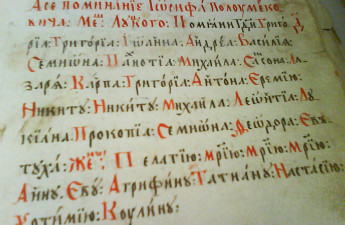 Асе поминание Іѡсифа Полоумеко
вича: Мє҃ Луского: Помѧни Г҃и Григо
рїа: Григорїа: Іѡанна: Андреа: Василїа
Семиѡна: Михаила: Самсона: Ла
зарѧ: Карпа: Григорїа: Антона: Еремїю:
Никиту: Никиту: Михаила: Леѡнтїа: Лу
кїана: Прокопїа: Семиѡна: Ѳеѡдора: Евъ
туха: Же҃: Пелагїю: мр҃їю: мр҃їю: мр҃їю:
Анну: Еву: Агрифину: Татїану: Настасїю:
Хотимїю: Коулину: